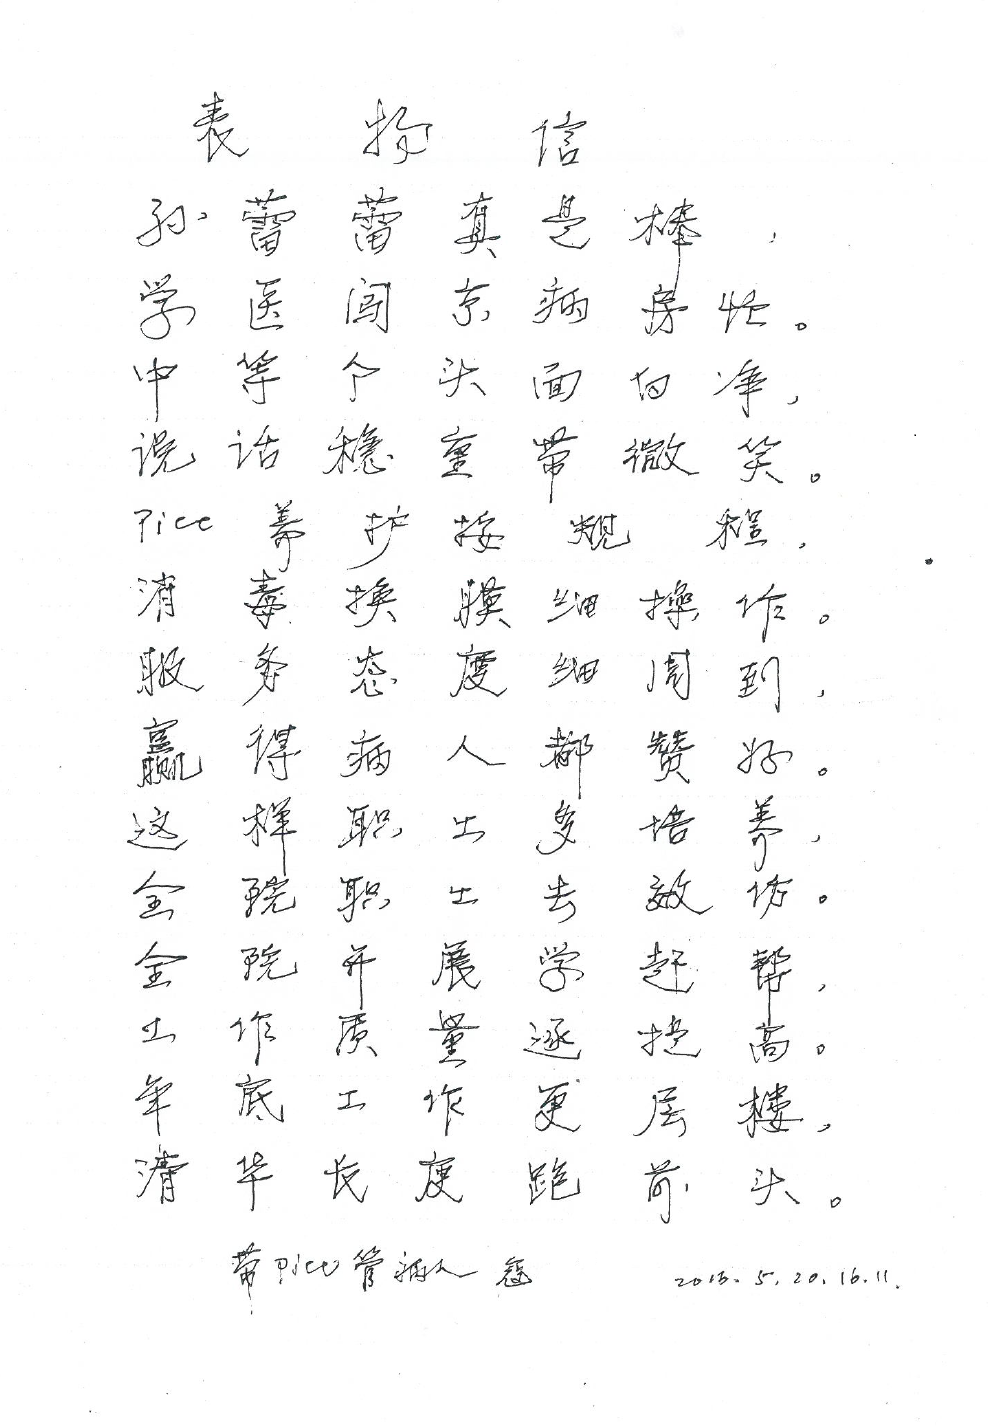 表扬信
孙蕾蕾真是棒，
学医闯京病房忙。
中等个头面白净，
说话稳重带微笑。
Picc养护按规程，
消毒换膜细操作。
服务态度细周到，
赢得病人都赞好。
这样职工多培养，
全院职工去效仿。
全院开展学赶帮，
工作质量逐提高。
年底工作更层楼，
清华长庚跑前头。
带Picc管病人
2016.5.20.16.11.